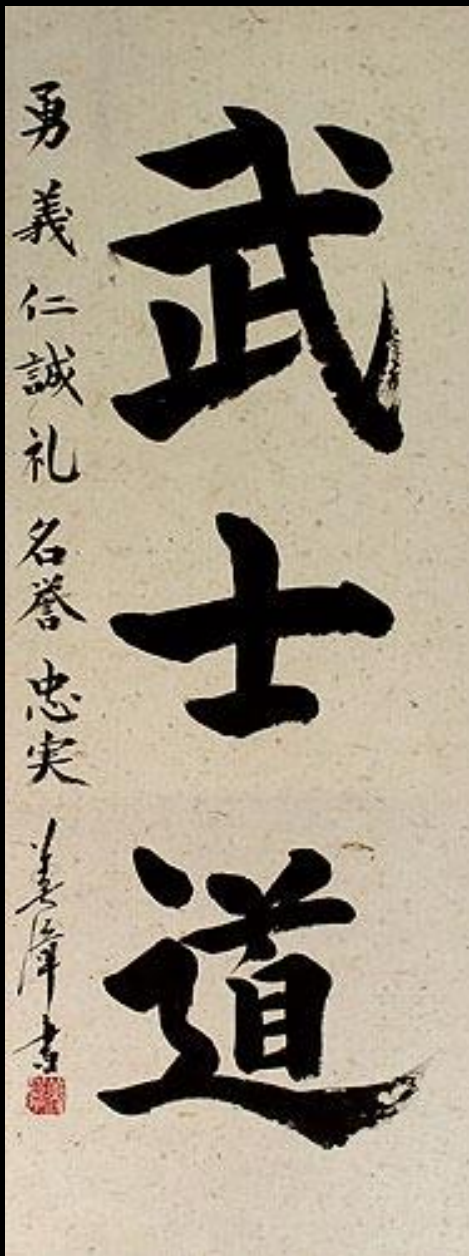 武士道
勇義仁誠礼名誉忠実 書